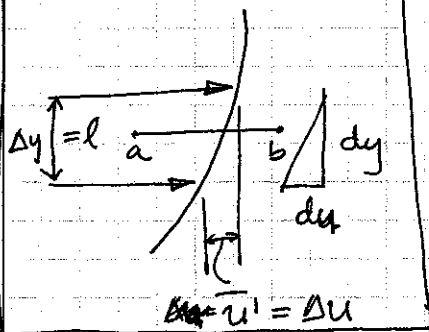 Δy = l
a
b
dy
du
u' = Δu